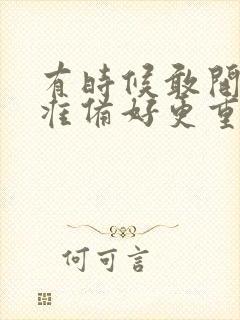 有時候敢闖
准備好更重
何可言